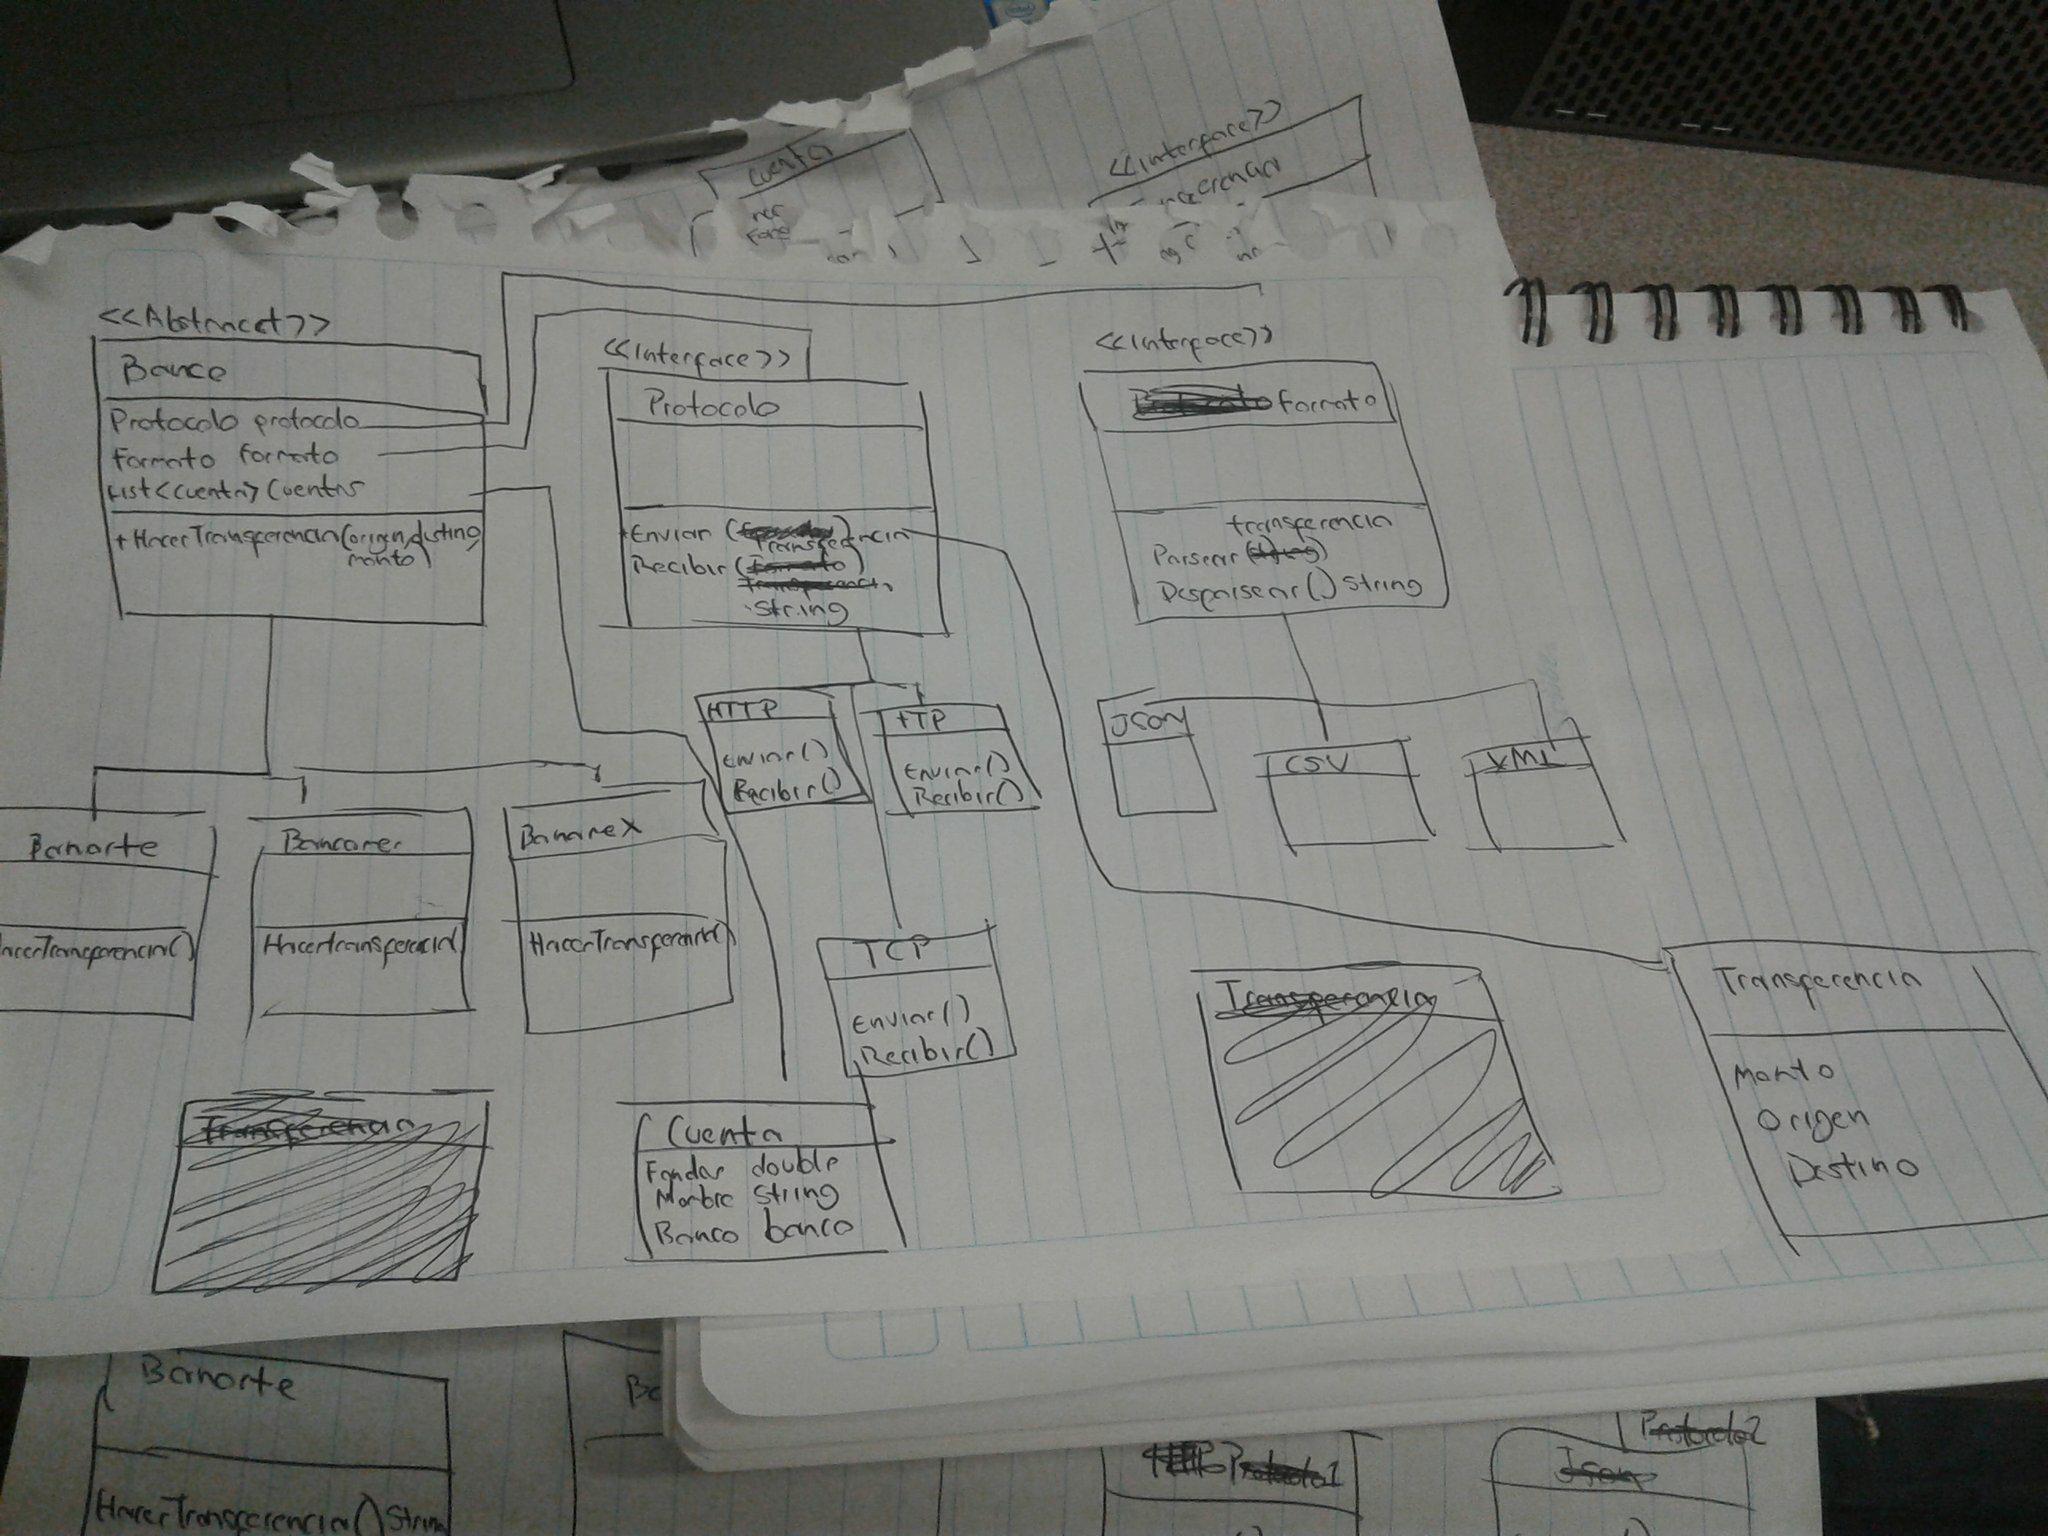 Cuenta
<<Interface>>
<<Abstract>>
Banco
Protocolo protocolo
Formato formato
List<Cuenta> Cuentas
+HacerTransferencia(origen,destino,
monto)
<<Interface>>
Protocolo
+Enviar (
Transferencia
Recibir (Formato)
Transferencia
String
<<Interface>>
Formato
transferencia
Parsear(String)
Desparsear() String
HTTP
Enviar()
Recibir()
FTP
Enviar()
Recibir()
JSON
CSV
XML
Banorte
HacerTransferencia()
Bancomer
HacerTransferencia()
Banamex
HacerTransferencia()
TCP
Enviar()
Recibir()
Transferencia
Transferencia
Monto
Origen
Destino
Transferencia
Cuenta
Fondos double
Nombre String
Banco banco
Banorte
HacerTransferencia() String
Ba
Protocolo1
Protocolo2
Json